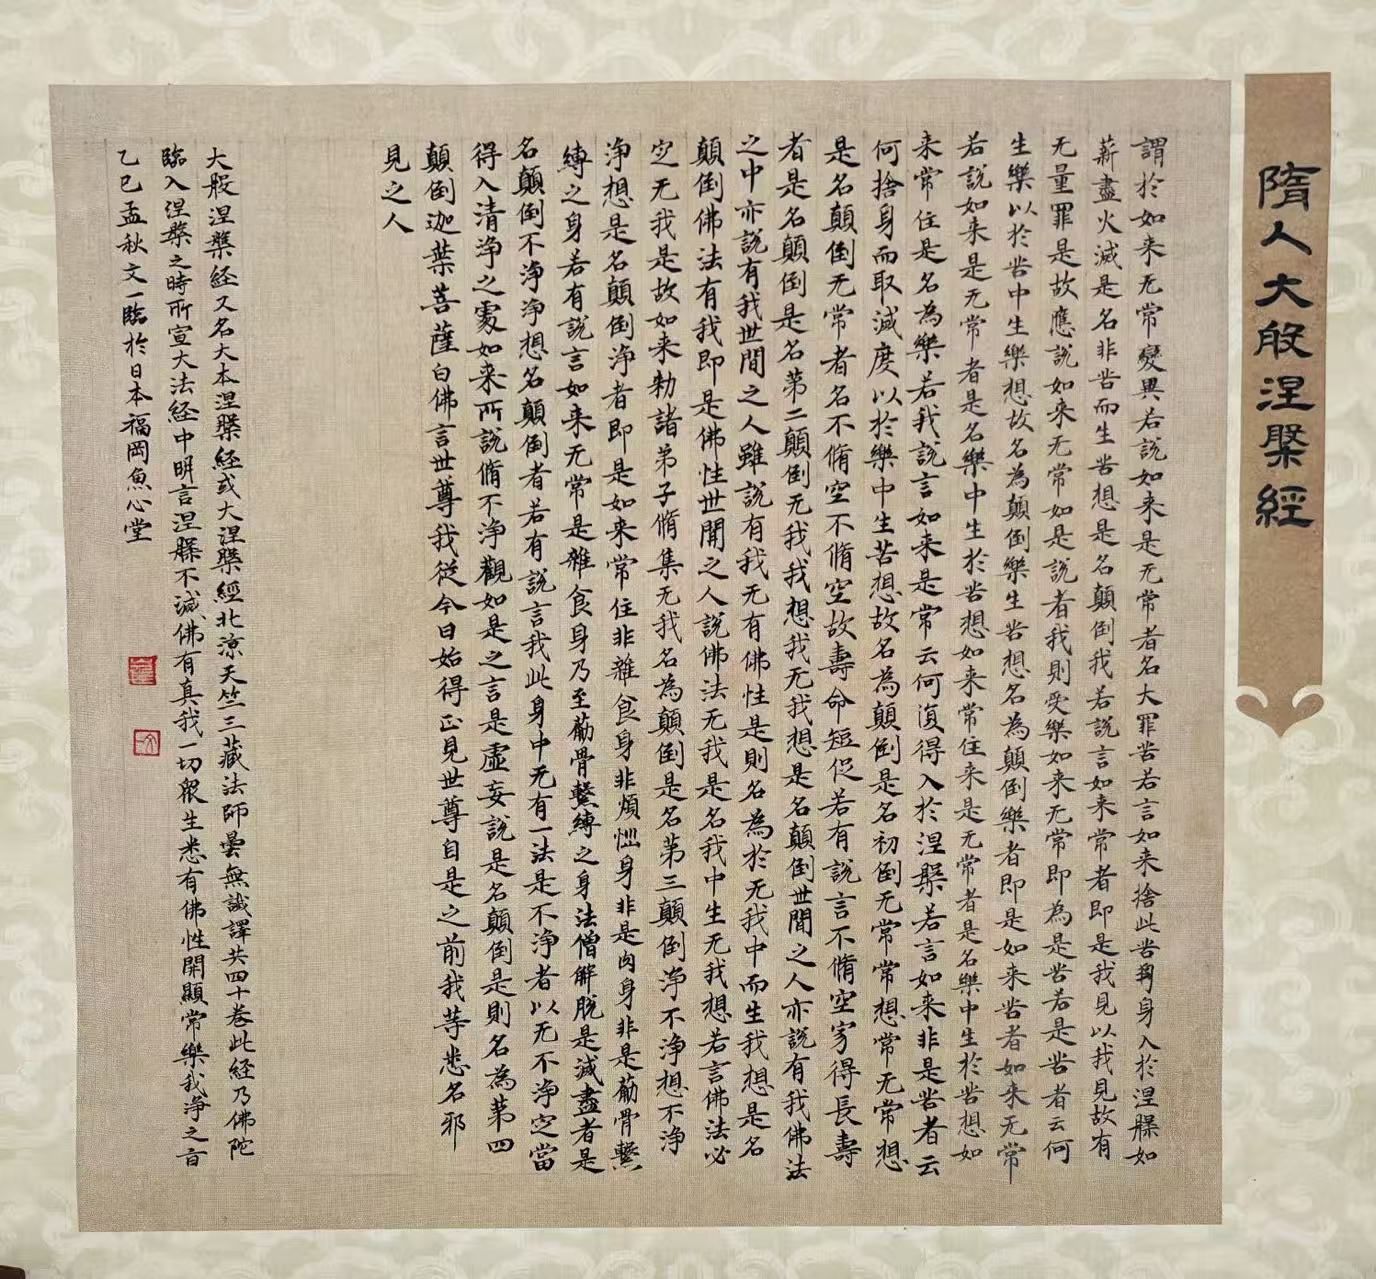 隋人大般涅槃經
謂於如来无常變異若說如来是无常者名大罪苦若言如来捨此苦身入於涅槃如
薪盡火滅是名非苦而生苦想是名顛倒我若說言如来常者即是我見以我見故有
无量罪是故應說如来无常如是說者我則受樂如来无常即為是苦若是苦者云何
生樂以於苦中生樂想故名為顛倒樂生苦想名為顛倒樂者即是如来苦者如来无常
若說如来是无常者是名樂中生於苦想如来常住来是无常者是名樂中生於苦想如
来常住是名為樂若我說言如来是常云何復得入於涅槃若言如来非是苦者云
何捨身而取滅度以於樂中生苦想故名為顛倒是名初倒无常常想常无常想
是名顛倒无常者名不脩空不脩空故壽命短促若有說言不脩空寂得長壽
者是名顛倒是名第二顛倒无我我想我无我想是名顛倒世間之人亦說有我佛法
之中亦說有我世間之人雖說有我无有佛性是則名為於无我中而生我想是名
顛倒佛法有我即是佛性世間之人說佛法无我是名我中生无我想若言佛法必
定无我是故如来勅諸弟子脩集无我名為顛倒是名第三顛倒淨不淨想不淨
淨想是名顛倒淨者即是如来常住非雜食身非煩惱身非是肉身非是筋骨繫
縛之身若有說言如来无常是雜食身乃至筋骨繫縛之身法僧解脫是滅盡者是
名顛倒不淨淨想名顛倒者若有說言我此身中无有一法是不淨者以无不淨定當
得入清淨之處如来所說脩不淨觀如是之言是虛妄說是名顛倒是則名為第四
顛倒迦葉菩薩白佛言世尊我從今日始得正見世尊自是之前我等悉名邪
見之人
大般涅槃経又名大本涅槃経或大涅槃經北涼天竺三藏法師曇無讖譯共四十卷此経乃佛陀
臨入涅槃之時所宣大法経中明言涅槃不滅佛有真我一切眾生悉有佛性開顯常樂我淨之旨
乙巳孟秋文一臨於日本福岡魚心堂
文一